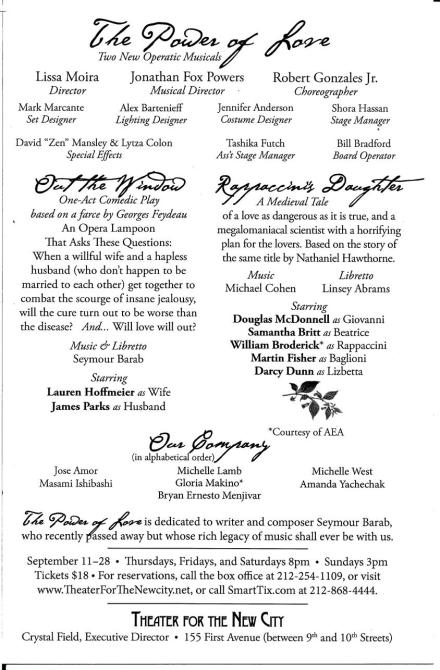 The Power of Love
Two New Operatic Musicals
Lissa Moira
Director
Jonathan Fox Powers
Musical Director
Robert Gonzales Jr.
Choreographer
Mark Marcante
Set Designer
Alex Bartenieff
Lighting Designer
Jennifer Anderson
Costume Designer
Shora Hassan
Stage Manager
David "Zen" Mansley & Lytza Colon
Special Effects
Tashika Futch
Ass't Stage Manager
Bill Bradford
Board Operator
Out the Window
One-Act Comedic Play
based on a farce by Georges Feydeau
An Opera Lampoon
That Asks These Questions:
When a willful wife and a hapless
husband (who don't happen to be
married to each other) get together to
combat the scourge of insane jealousy,
will the cure turn out to be worse than
the disease? And... Will love will out?
Music & Libretto
Seymour Barab
Starring
Lauren Hoffmeier as Wife
James Parks as Husband
Rappaccini's Daughter
A Medieval Tale
of a love as dangerous as it is true, and a
megalomaniacal scientist with a horrifying
plan for the lovers. Based on the story of
the same title by Nathaniel Hawthorne.
Music
Michael Cohen
Libretto
Linsey Abrams
Starring
Douglas McDonnell as Giovanni
Samantha Britt as Beatrice
William Broderick* as Rappaccini
Martin Fisher as Baglioni
Darcy Dunn as Lizbetta
*Courtesy of AEA
Our Company
(in alphabetical order)
Jose Amor
Masami Ishibashi
Michelle Lamb
Gloria Makino*
Bryan Ernesto Menjivar
Michelle West
Amanda Yachechak
The Power of Love is dedicated to writer and composer Seymour Barab,
who recently passed away but whose rich legacy of music shall ever be with us.
September 11–28 • Thursdays, Fridays, and Saturdays 8pm • Sundays 3pm
Tickets $18 • For reservations, call the box office at 212-254-1109, or visit
www.TheaterForTheNewcity.net, or call SmartTix.com at 212-868-4444.
THEATER FOR THE NEW CITY
Crystal Field, Executive Director • 155 First Avenue (between 9th and 10th Streets)